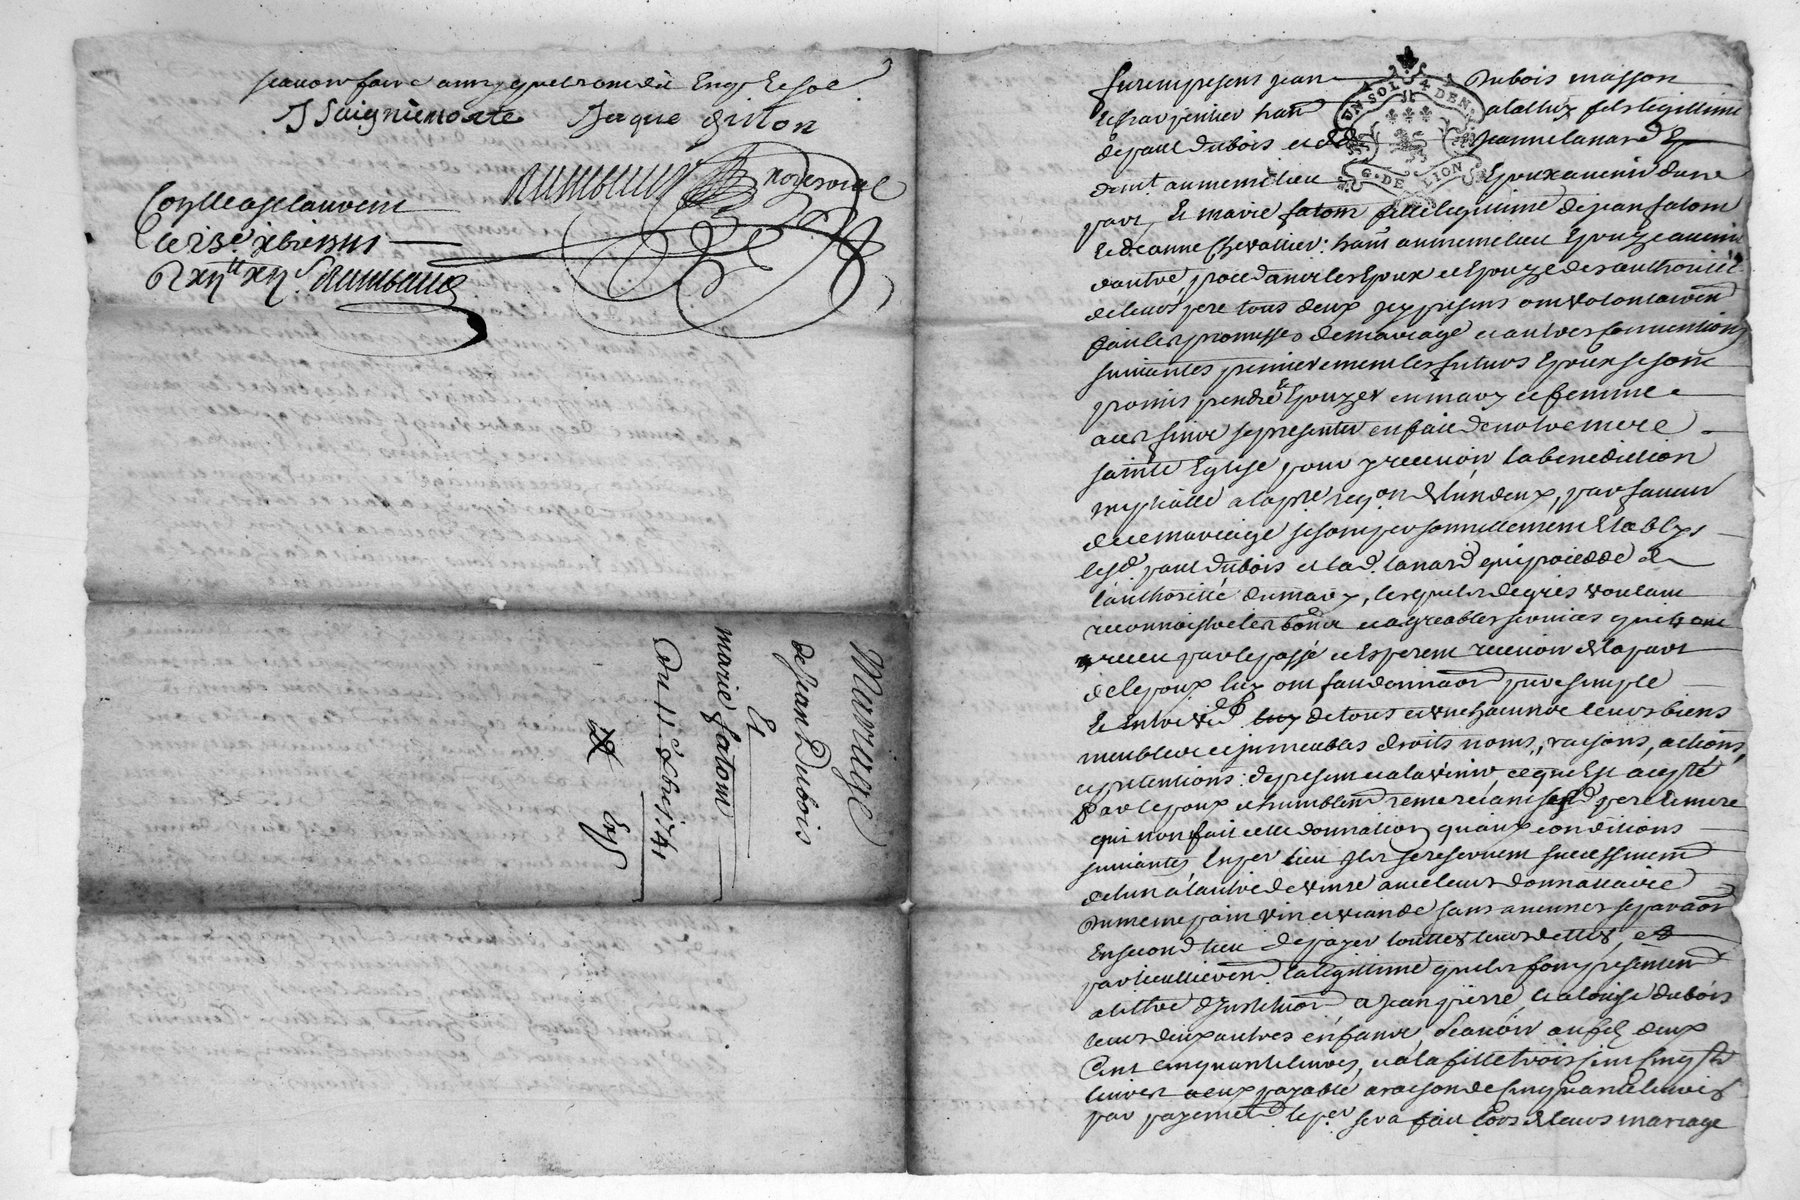 scauoir faire anrg quel romdû Enqr Ecsol
J Saigniemorte Jacque gillon
not royal
Mariage
de Jean Dubois
Et
marie fatom
Du 11e xbre 1741
Exp
UN SOL 4 DEN.
G. DE LION
furent presens jean Dubois masson
et charpentier hant a lallux fils legittime
de paul Dubois et de Jeanne lanard Ep
dem.t au meme lieu Epoux avenir d'une
part, Et marie fatom fille legitime de jean fatom
et de jeanne Chevallier: hant au meme lieu Epouze avenir
d'autre, procedant les Epoux et Epouze de l'authorité
de leurs pere tous deux icy presens ont volontairem.t
fait les promesses de mariage et autres conventions
suivantes premierement les futurs Epoux se sont
promis prendre et Epouzer en mary et femme
a ces fins se presenter en face de notre mere
sainte Eglise pour y recevoir la benediction
nuptialle a la pre req.on de l'un d'eux, par faveur
de ce mariage se sont personnellement Etablys
lesd. paul Dubois et lad. lanard qui procedde de
l'authorité du mary, lesquels de gres voulant
reconnoistre les bons et agreables services qu'ils ont
receu par le passé et Esperent recevoir de la part
de l'epoux luy ont fait donnaon pure simple
Et Entre vifs de tous et un chacun de leurs biens
meubles et immeubles droits noms, raisons, actions,
et pretentions: de present et a l'avenir ce qu'Est accepté
Par l'epoux et humblem.t remerciant sesd. pere et mere
qui n'ont fait cette donnation qu'aux conditions
suivantes En per lieu ils se reservent successivem.t
de l'un a l'autre de vivre avec leur donnattaire
du meme pain vin et viande sans aucunes separaon
En second lieu de payer touttes leurs dettes, et
particullierem.t la legittime qu'ils font presentem.t
a tittre d'instituon a jean pierre, et a louise dubois
leurs deux autres enfants, scavoir au fils deux
Cent cinquante livres, et a la fille trois cent cinq.te
livres a eux payable a raison de cinquante livres
par payement le per sera fait lors de leurs mariage